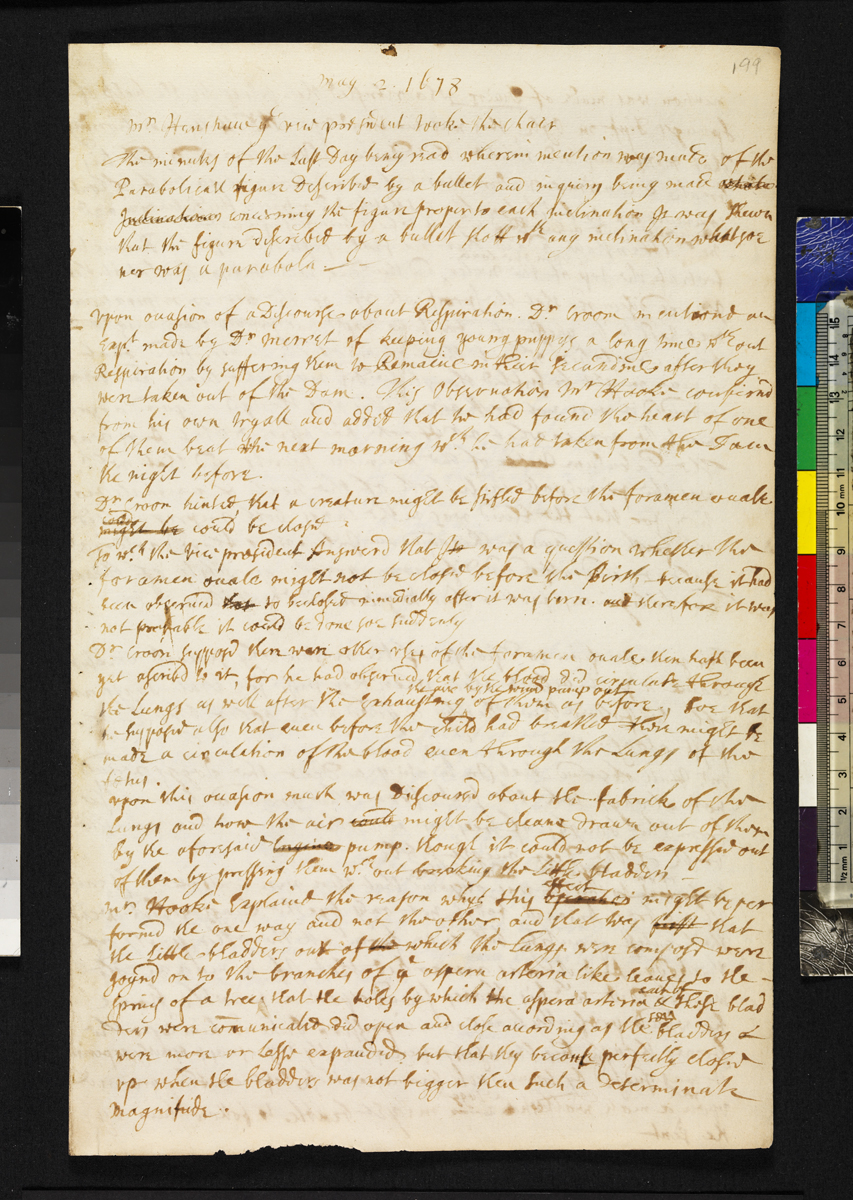 199
May 2. 1678
Mr. Henshaw ye vice president tooke the chair
The minutes of the Last Day being read wherein mention was made of the
Parabolicall figure Described by a bullet and inquiry being made
Inclinations concerning the figure proper to each inclination It was shewn
that the figure described by a bullet shott wth any inclination whatsoe
ver was a parabola
upon occasion of a Discourse about Respiration. Dr Croon mentiond an
Expt. made by Dr Merret of keeping young puppys a long time wthout
Respiration by suffering them to Remaine in their secundines after they
were taken out of the Dam. This observation Mr Hooke confirmd
from his own tryall and added that he had found the heart of one
of them beat the next morning wch he had taken from the Dam
the night before.
Dr Croon hinted that a creature might be stifled before the foramen ovale
could
might be could be closd
To wch the vice president Answerd that It was a question whether the
foramen ovale might not be closd before the Birth because it had
been observed to be closed immediatly after it was born. and therefore it was
not probable it could be done soe suddenly
Dr Croon supposd there were other uses of the foramen ovale then hath been
yet ascribd to it, for he had observed that the blood did circulate through
the air by the wind pump out
the Lungs as well after the Exhausting of them as before, soe that
he supposd also that even before the child had breathed there might be
made a circulation of the blood even through the Lungs of the
fetus.
upon this occasion much was Discoursd about the fabrick of the
Lungs and how the air could might be cleane drawn out of them
by the aforesaid Engine pump. though it could not be expressd out
of them by pressing them wthout breaking the little bladders
effect
Mr. Hooke Explaind the reason why this might be per
formd the one way and not the other and that was first that
the Little bladders out of the which the Lungs were composd were
joynd on to the branches of ye aspera arteria like leaves to the
sprigs of a tree that the holes by which the aspera arteria & those blad
ders were communicated did open and close according as the bladders
were more or lesse expanded but that they became perfectly closed
up when the bladders was not bigger then such a Determinate
magnitude.